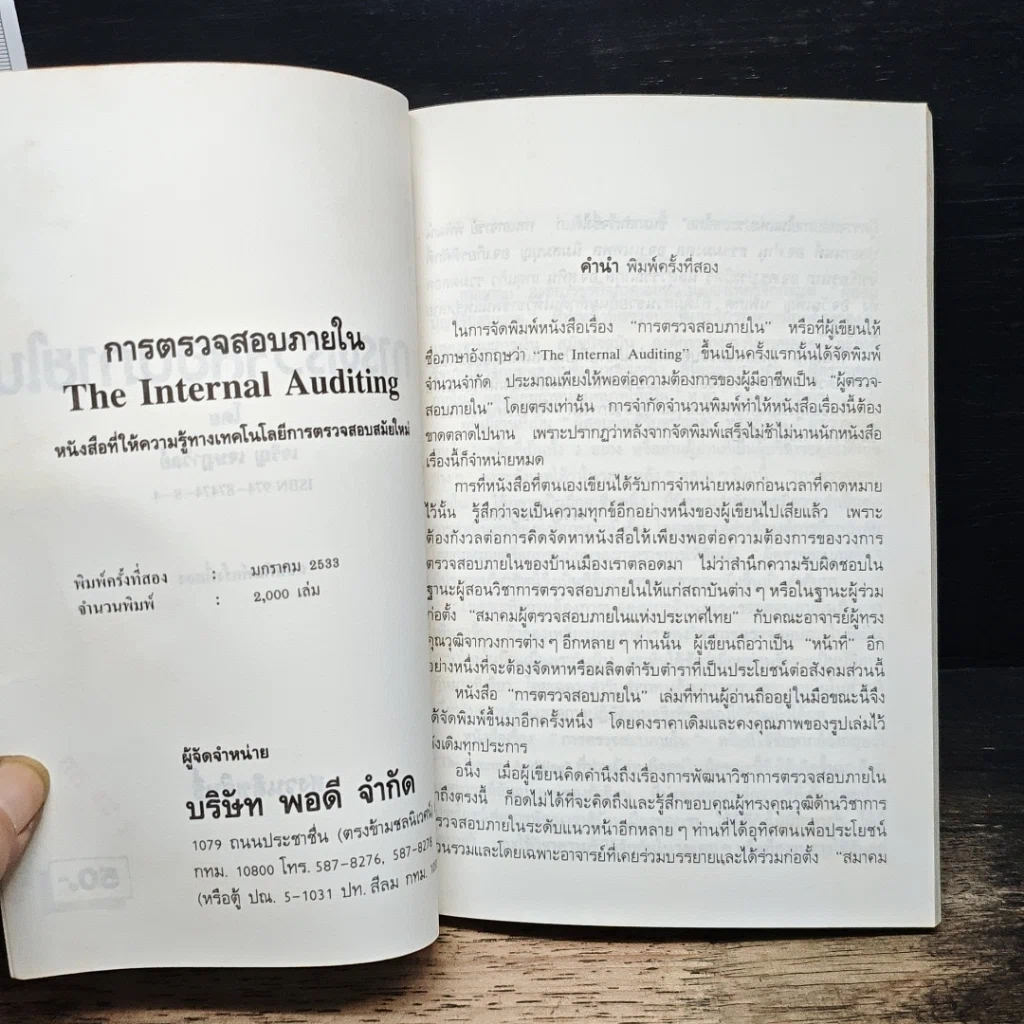 การตรวจสอบภายใน
The Internal Auditing
หนังสือที่ให้ความรู้ทางเทคโนโลยีการตรวจสอบสมัยใหม่
พิมพ์ครั้งที่สอง : มกราคม 2533
จำนวนพิมพ์ : 2,000 เล่ม
ผู้จัดจำหน่าย
บริษัท พอดี จำกัด
1079 ถนนประชาชื่น (ตรงข้ามชลนิเวศน์)
กทม. 10800 โทร. 587-8276, 587-8278
(หรือตู้ ปณ. 5-1031 ปท. สีลม กทม.
คำนำ พิมพ์ครั้งที่สอง
ในการจัดพิมพ์หนังสือเรื่อง "การตรวจสอบภายใน" หรือที่ผู้เขียนให้
ชื่อภาษาอังกฤษว่า "The Internal Auditing" ขึ้นเป็นครั้งแรกนั้นได้จัดพิมพ์
จำนวนจำกัด ประมาณเพียงให้พอต่อความต้องการของผู้มีอาชีพเป็น "ผู้ตรวจ-
สอบภายใน" โดยตรงเท่านั้น การจำกัดจำนวนพิมพ์ทำให้หนังสือเรื่องนี้ต้อง
ขาดตลาดไปนาน เพราะปรากฏว่าหลังจากจัดพิมพ์เสร็จไม่ช้าไม่นานนักหนังสือ
เรื่องนี้ก็จำหน่ายหมด
การที่หนังสือที่ตนเองเขียนได้รับการจำหน่ายหมดก่อนเวลาที่คาดหมาย
ไว้นั้น รู้สึกว่าจะเป็นความทุกข์อีกอย่างหนึ่งของผู้เขียนไปเสียแล้ว เพราะ
ต้องกังวลต่อการคิดจัดหาหนังสือให้เพียงพอต่อความต้องการของวงการ
ตรวจสอบภายในของบ้านเมืองเราตลอดมา ไม่ว่าสำนึกความรับผิดชอบใน
ฐานะผู้สอนวิชาการตรวจสอบภายในให้แก่สถาบันต่าง ๆ หรือในฐานะผู้ร่วม
ก่อตั้ง "สมาคมผู้ตรวจสอบภายในแห่งประเทศไทย" กับคณะอาจารย์ผู้ทรง
คุณวุฒิจากวงการต่าง ๆ อีกหลาย ๆ ท่านนั้น ผู้เขียนถือว่าเป็น "หน้าที่" อีก
อย่างหนึ่งที่จะต้องจัดหาหรือผลิตตำรับตำราที่เป็นประโยชน์ต่อสังคมส่วนนี้
หนังสือ "การตรวจสอบภายใน" เล่มที่ท่านผู้อ่านถืออยู่ในมือขณะนี้จึง
ได้จัดพิมพ์ขึ้นมาอีกครั้งหนึ่ง โดยคงราคาเดิมและคงคุณภาพของรูปเล่มไว้
ดังเดิมทุกประการ
อนึ่ง เมื่อผู้เขียนคิดคำนึงถึงเรื่องการพัฒนาวิชาการตรวจสอบภายใน
มาถึงตรงนี้ ก็อดไม่ได้ที่จะคิดถึงและรู้สึกขอบคุณผู้ทรงคุณวุฒิด้านวิชาการ
ตรวจสอบภายในระดับแนวหน้าอีกหลาย ๆ ท่านที่ได้อุทิศตนเพื่อประโยชน์
ส่วนรวมและโดยเฉพาะอาจารย์ที่เคยร่วมบรรยายและได้ร่วมก่อตั้ง "สมาคม